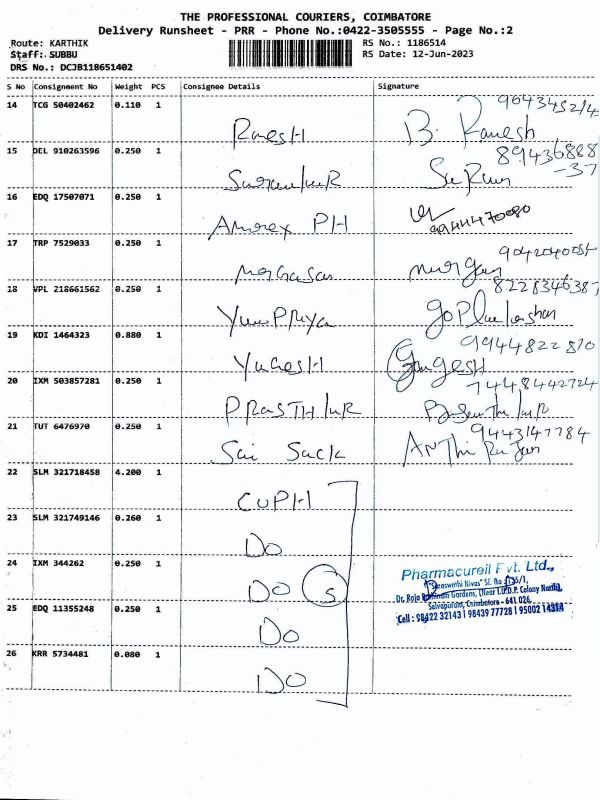 THE PROFESSIONAL COURIERS, COIMBATORE
Delivery Runsheet - PRR - Phone No.:0422-3505555 - Page No.:2
Route: KARTHIK
Staff: SUBBU
DRS No.: DCJB118651402
RS No.: 1186514
RS Date: 12-Jun-2023
S No Consignment No Weight PCS Consignee Details Signature
14 TCG 50402462 0.110 1 RamesH B. Ramesh
15 DEL 910263596 0.250 1 89436888
-37
16 EDQ 17507071 0.250 1 PH 9944470080
17 TRP 7529033 0.250 1
18 VPL 218661562 0.250 1 8228346387
19 KDI 1464323 0.880 1 YugesH 9944822810
20 IXM 503857281 0.250 1 7448442724
21 TUT 6476970 0.250 1 Sai 9443147784
22 SLM 321718458 4.200 1 CUPH
23 SLM 321749146 0.260 1 Do
24 IXM 344262 0.250 1 Do 5
25 EDQ 11355248 0.250 1 Do
26 KRR 5734481 0.080 1 Do
Pharmacureil Pvt. Ltd.,
"Saraswathi Nivas" Sf. No
Gardens, (Near T.U.D.P. Colony North),
Selvapuram, Coimbatore - 641 026.
Cell : 98422 32143 | 98439 77728 | 95002 14314